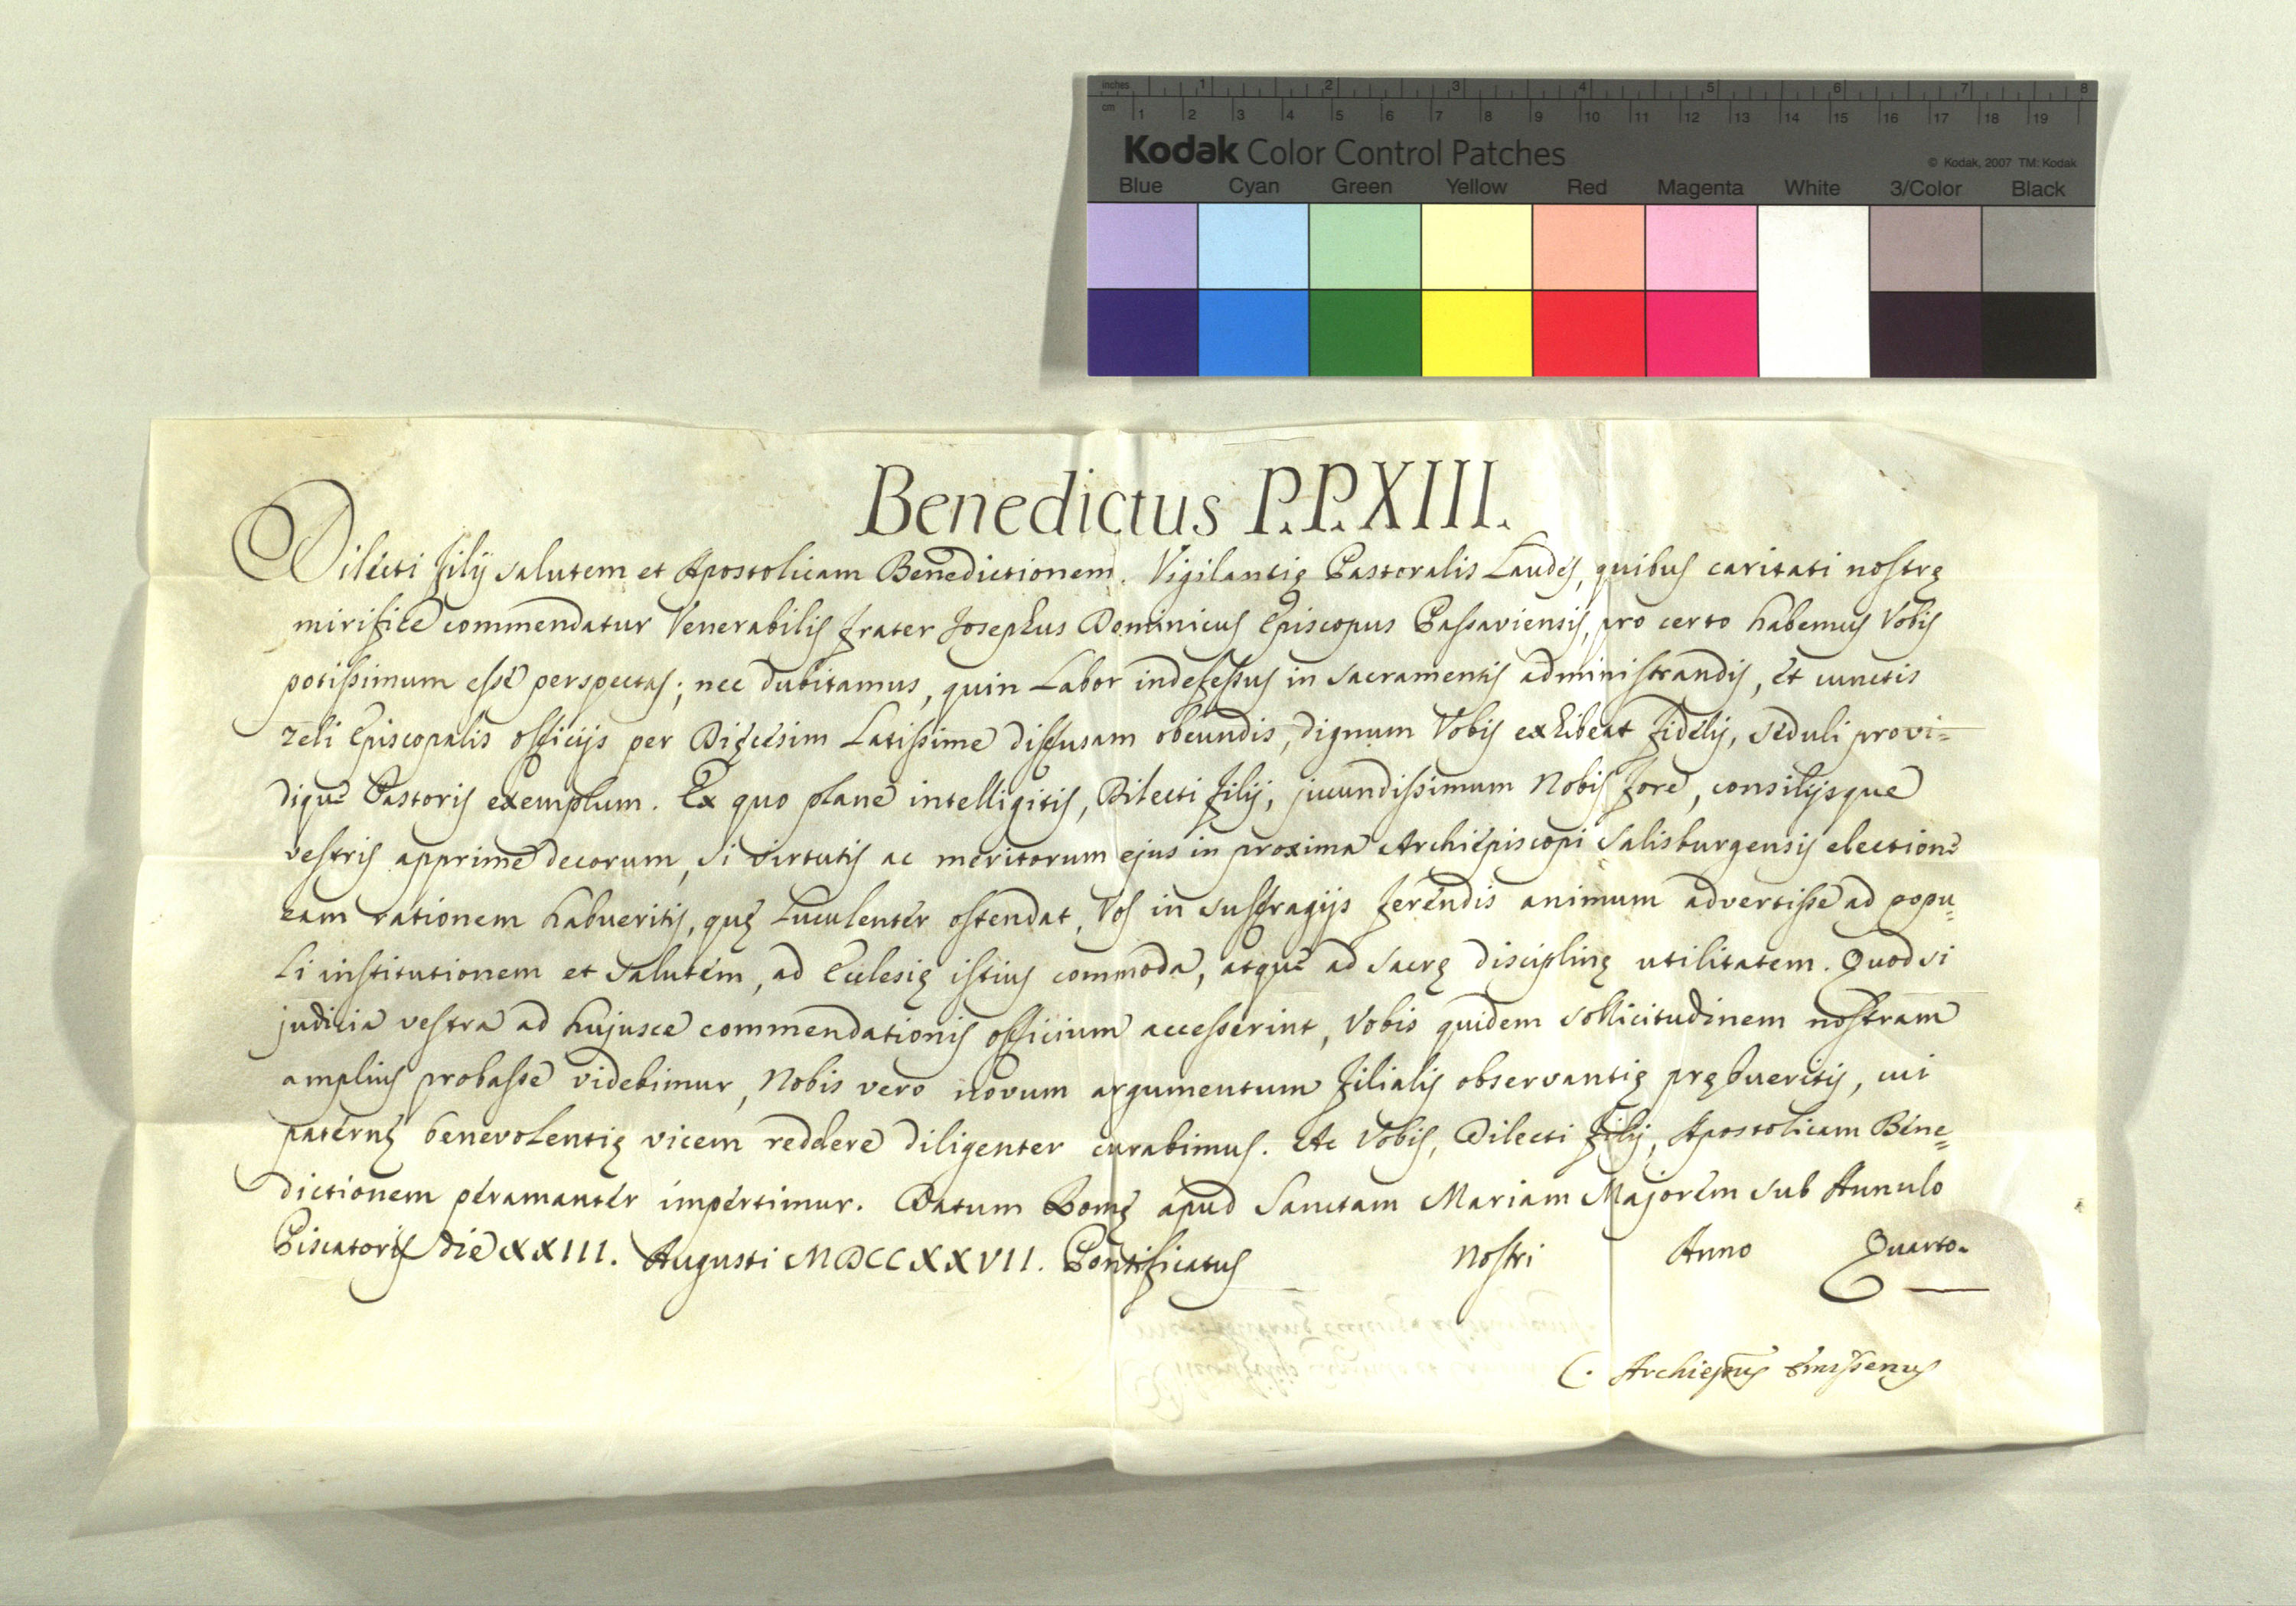 inches 1 2 3 4 5 6 7 8
cm 1 2 3 4 5 6 7 8 9 10 11 12 13 14 15 16 17 18 19
Kodak Color Control Patches © Kodak, 2007 TM: Kodak
Blue Cyan Green Yellow Red Magenta White 3/Color Black
Benedictus P.P.XIII.
Dilecti filij salutem et Apostolicam Benedictionem. Vigilantię Pastoralis Laudes, quibus caritati nostrę
mirifice commendatur Venerabilis frater Josephus Dominicus Episcopus Passaviensis, pro certo habemus Vobis
potissimum esse perspectas; nec dubitamus, quin Labor indefessus in sacramentis administrandis, et cunctis
zeli Episcopalis officijs per Dięcesim Latissime diffusam obeundis, dignum Vobis exhibeat fidelis, seduli provi=
dique Pastoris exemplum. Ex quo plane intelligitis, Dilecti filij, jucundissimum Nobis fore, consilijsque
vestris apprime decorum, si virtutis ac meritorum ejus in proxima Archiepiscopi Salisburgensis electione
eam rationem habueritis, quę Luculenter ostendat, Vos in suffragijs ferendis animum advertisse ad popu=
li institutionem et salutem, ad Ecclesię istius commoda, atque ad sacrę disciplinę utilitatem. Quod si
judicia vestra ad hujusce commendationis officium accesserint, Vobis quidem sollicitudinem nostram
amplius probasse videbimur, Nobis vero novum argumentum filialis observantię prębueritis, cui
paternę benevolentię vicem reddere diligenter curabimus. Ac Vobis, Dilecti filij, Apostolicam Bene=
dictionem peramanter impertimur. Datum Romę apud Sanctam Mariam Majorem sub Annulo
Piscatoris die XXIII. Augusti MDCCXXVII. Pontificatus Nostri Anno Quarto.
C. Archiepũs Emissenus